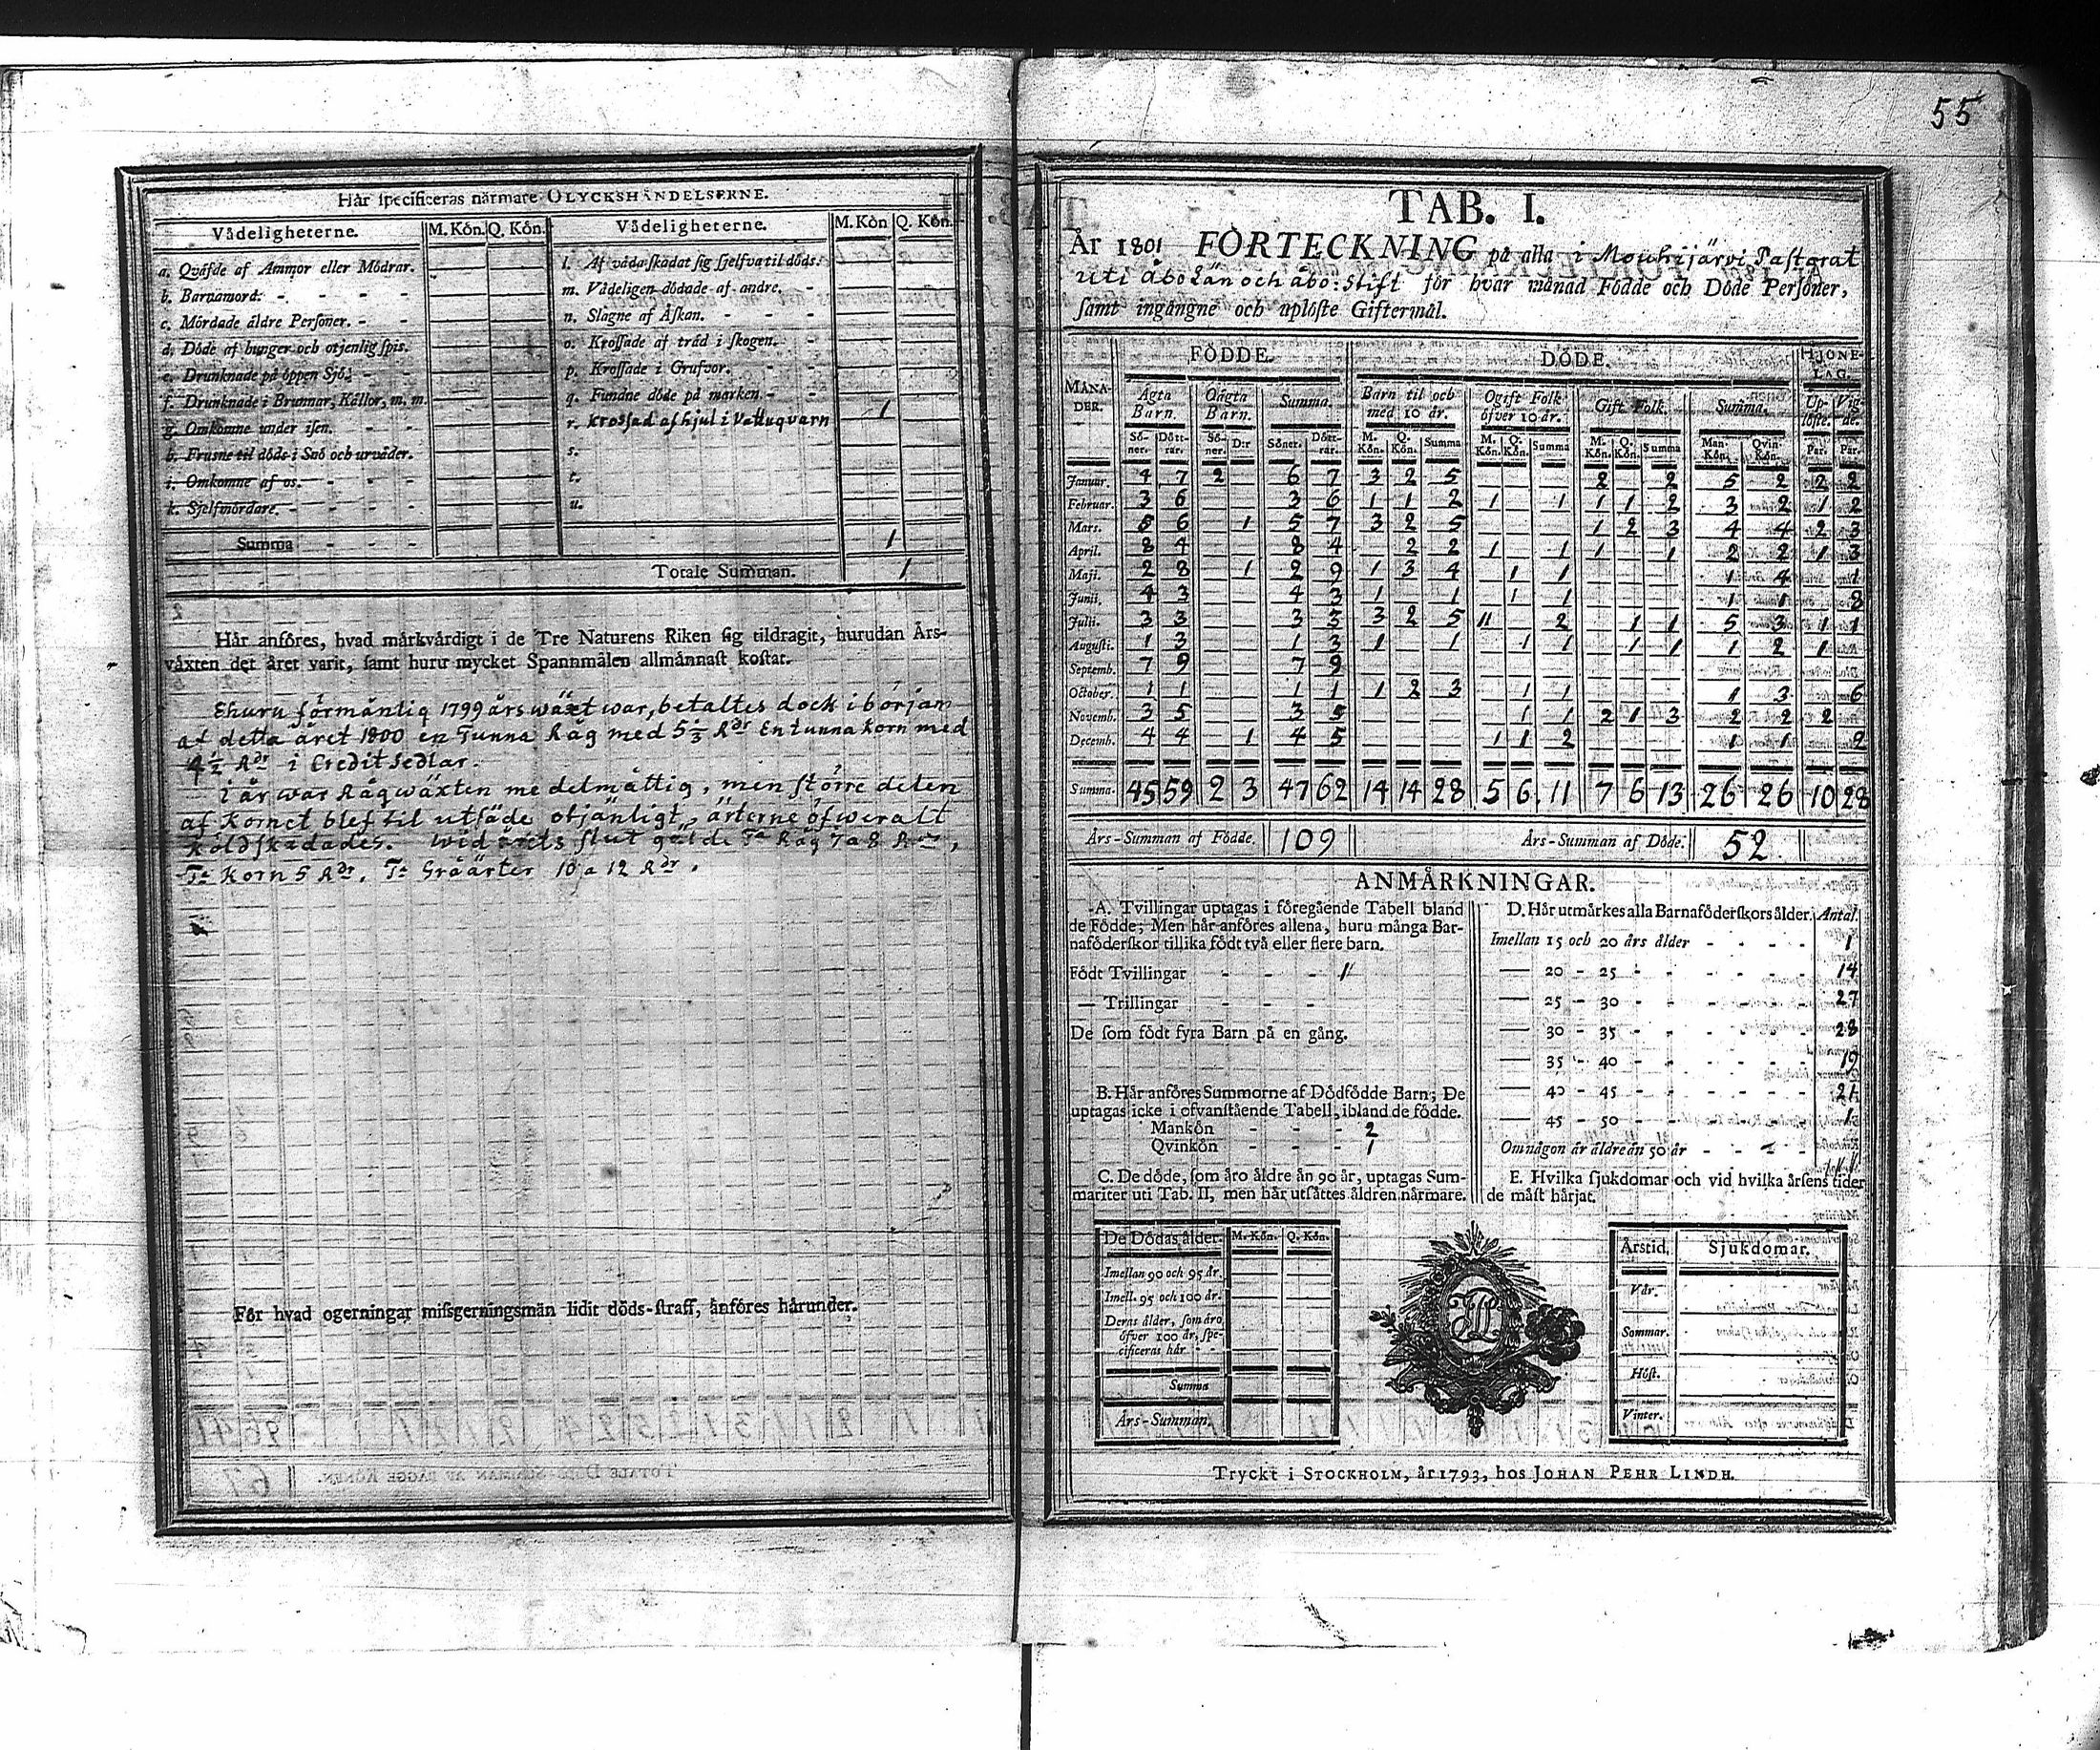 55
Hår specificeras närmare OLYCKSHÄNDELSERNE.
Vådeligheterne. M. Kön. Q. Kön. Vådeligheterne. M. Kön Q. Kön.
a. Qväfde af Ammor eller Mödrar. l. Af våda skadat sig sjelfva til döds.
b. Barnamord. m. Vådeligen dödade af andre.
c. Mördade äldre Personer. n. Slagne af Åskan.
d. Döde af hunger och otjenlig spis. o. Krossade af träd i skogen.
e. Drunknade på öppen Sjö. p. Krossade i Grufvor.
f. Drunknade i Brunnar, Källor, m. m. q. Fundne döde på marken.
g. Omkomne under isen. r. krossad af hjul i Vattuqvarn 1
h. Frusne til döds i Snö och urväder. s.
i. Omkomne af os. t.
k. Sjelfmördare. u.
Summa 1
Totale Summan. 1
Hår anföres, hvad märkvärdigt i de Tre Naturens Riken sig tildragit, hurudan Års-
växten det året varit, samt huru mycket Spannmålen allmännast kostat.
Ehuru förmånlig 1799 års wäxt war, betaltes dock i början
af detta året 1800 en Tunna Råg med 5 1/3 Rdr En tunna Korn med
4 1/2 Rdr i Creditsedlar.
i år war Rågwäxten medelmåttig, men större delen
af Kornet blef til utsäde otjänligt, ärterne öfweralt
köldskadades. Wid årets slut gälde Ta Råg 7 a 8 Rdr,
Ta Korn 5 Rdr. Ta Gråärter 10 a 12 Rdr.
För hvad ogerningar missgerningsmän lidit döds-straff, anföres hårunder.
TAB. I.
År 1801 FÖRTECKNING på alla i Mouhijärvi Pastorat
uti Åbo Län och Åbo: Stift för hvar månad Födde och Döde Personer,
samt ingångne och uplöste Giftermål.
FÖDDE. DÖDE. HJONELAG.
MÅNADER. Ägta Barn. Oägta Barn. Summa. Barn til och med 10 år. Ogift Folk öfver 10 år. Gift Folk. Summa. Uplöste. Vigde.
Söner. Döttrar. Söner. D:r Söner. Döttrar. M. Kön. Q. Kön. Summa M. Kön. Q. Kön. Summa M. Kön. Q. Kön. Summa Man-Kön. Qvin-Kön. Par. Par.
Januar. 4 7 2 6 7 3 2 5 2 2 5 2 2 2
Februar. 3 6 3 6 1 1 2 1 1 1 1 2 3 2 1 2
Mars. 5 6 1 5 7 3 2 5 1 2 3 4 4 2 3
April. 8 4 8 4 2 2 1 1 1 1 2 2 1 3
Maji. 2 8 1 2 9 1 3 4 1 1 1 4 1
Junii. 4 3 4 3 1 1 1 1 1 1 8
Julii. 3 3 3 3 3 2 5 11 2 1 1 5 3 1 1
Augusti. 1 3 1 3 1 1 1 1 1 1 1 2 1
Septemb. 7 9 7 9
October. 1 1 1 1 1 2 3 1 1 1 3 6
Novemb. 3 5 3 5 1 1 2 1 3 2 2 2
Decemb. 4 4 1 4 5 1 1 2 1 1 2
Summa. 45 59 2 3 47 62 14 14 28 5 6 11 7 6 13 26 26 10 28
Års-Summan af Födde. 109 Års-Summan af Döde. 52
ANMÄRKNINGAR.
A. Tvillingar uptagas i föregående Tabell bland
de Födde; Men hår anföres allena, huru många Bar-
naföderskor tillika födt två eller flere barn.
Födt Tvillingar 1
— Trillingar
De som födt fyra Barn på en gång.
B. Hår anföres Summorne af Dödfödde Barn; De
uptagas icke i ofvanstående Tabell, ibland de födde.
Mankön 2
Qvinkön 1
C. De döde, som äro äldre än 90 år, uptagas Sum-
mariter uti Tab. II, men hår utsättes åldren närmare.
De Dödas ålder. M. Kön. Q. Kön.
Imellan 90 och 95 år.
Imell. 95 och 100 år.
Deras ålder, som äro
öfver 100 år, spe-
cificeras hår
Summa
Års-Summan.
D. Hår utmärkes alla Barnaföderskors ålder. Antal.
Imellan 15 och 20 års ålder 1
— 20 - 25 14
— 25 - 30 27
— 30 - 35 28
— 35 - 40 19
— 40 - 45 21
— 45 - 50 1
Om någon är äldre än 50 år
111
E. Hvilka sjukdomar och vid hvilka årsens tider
de mäst härjat.
Årstid. Sjukdomar.
Vår.
Sommar.
Höst.
Vinter.
Tryckt i STOCKHOLM, år 1793, hos JOHAN PEHR LINDH.